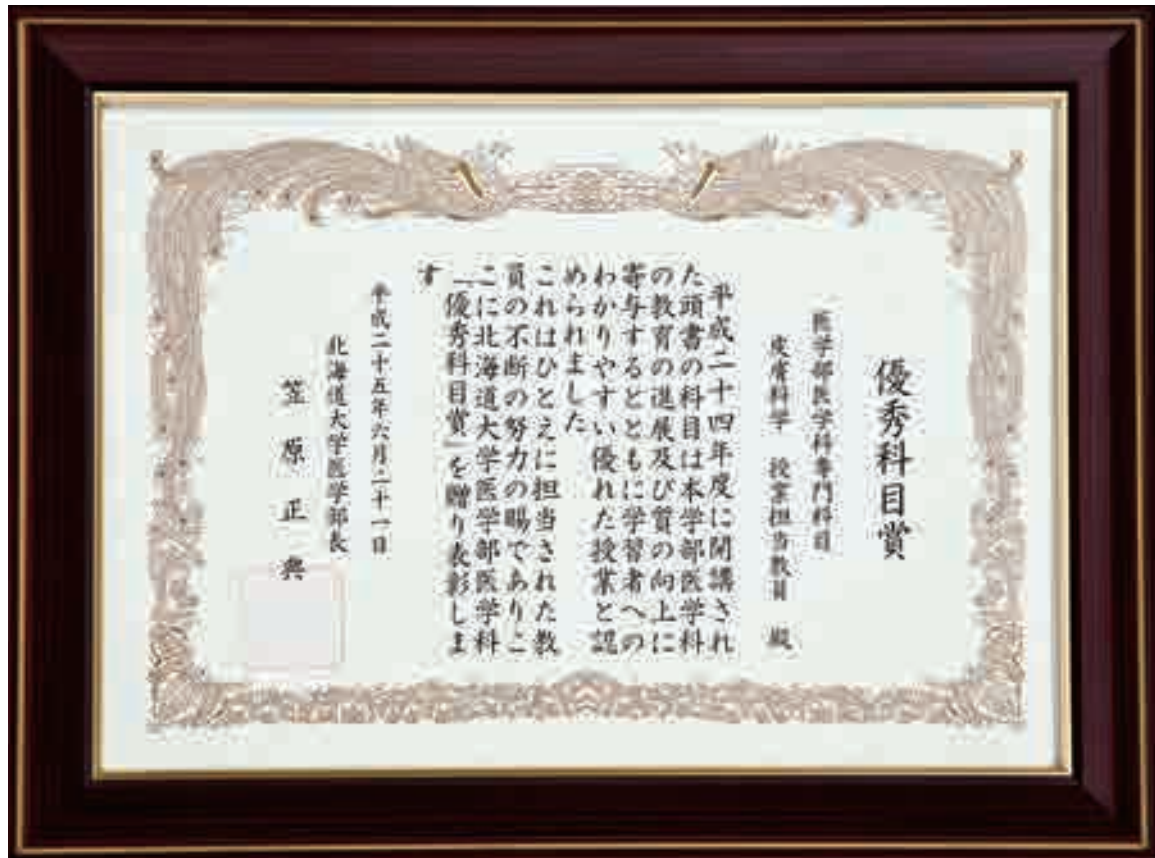 優秀科目賞
医学部医学科専門科目
皮膚科学 授業担当教員 殿
平成二十四年度に開講され
た頭書の科目は本学部医学科
の教育の進展及び質の向上に
寄与するとともに学習者への
わかりやすい優れた授業と認
められました
これはひとえに担当された教
員の不断の努力の賜でありこ
こに北海道大学医学部医学科
「優秀科目賞」を贈り表彰しま
す
平成二十五年六月二十一日
北海道大学医学部長
笠原正典